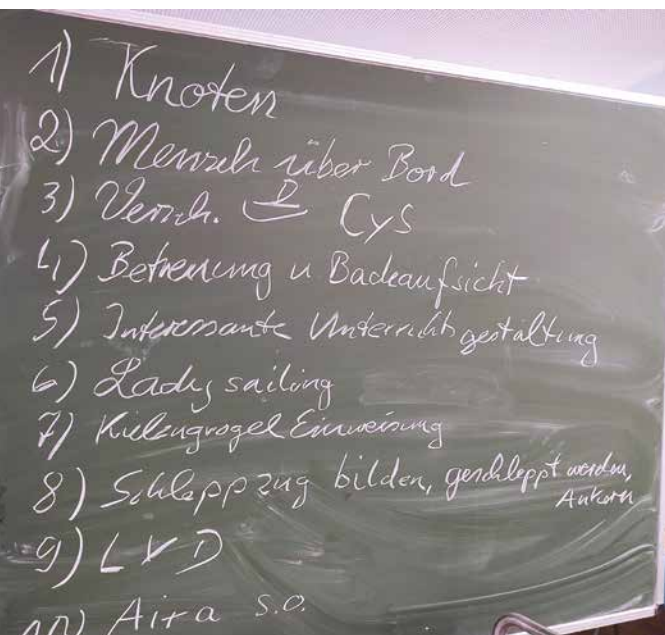 1) Knoten
2) Mensch über Bord
3) Versch. CyS
4) Betreuung u Badeaufsicht
5) Interessante Unterrichtsgestaltung
6) Lady sailing
7) Einweisung
8) Schleppzug bilden, geschleppt werden,
Ankern
9) L V D
10) s.o.